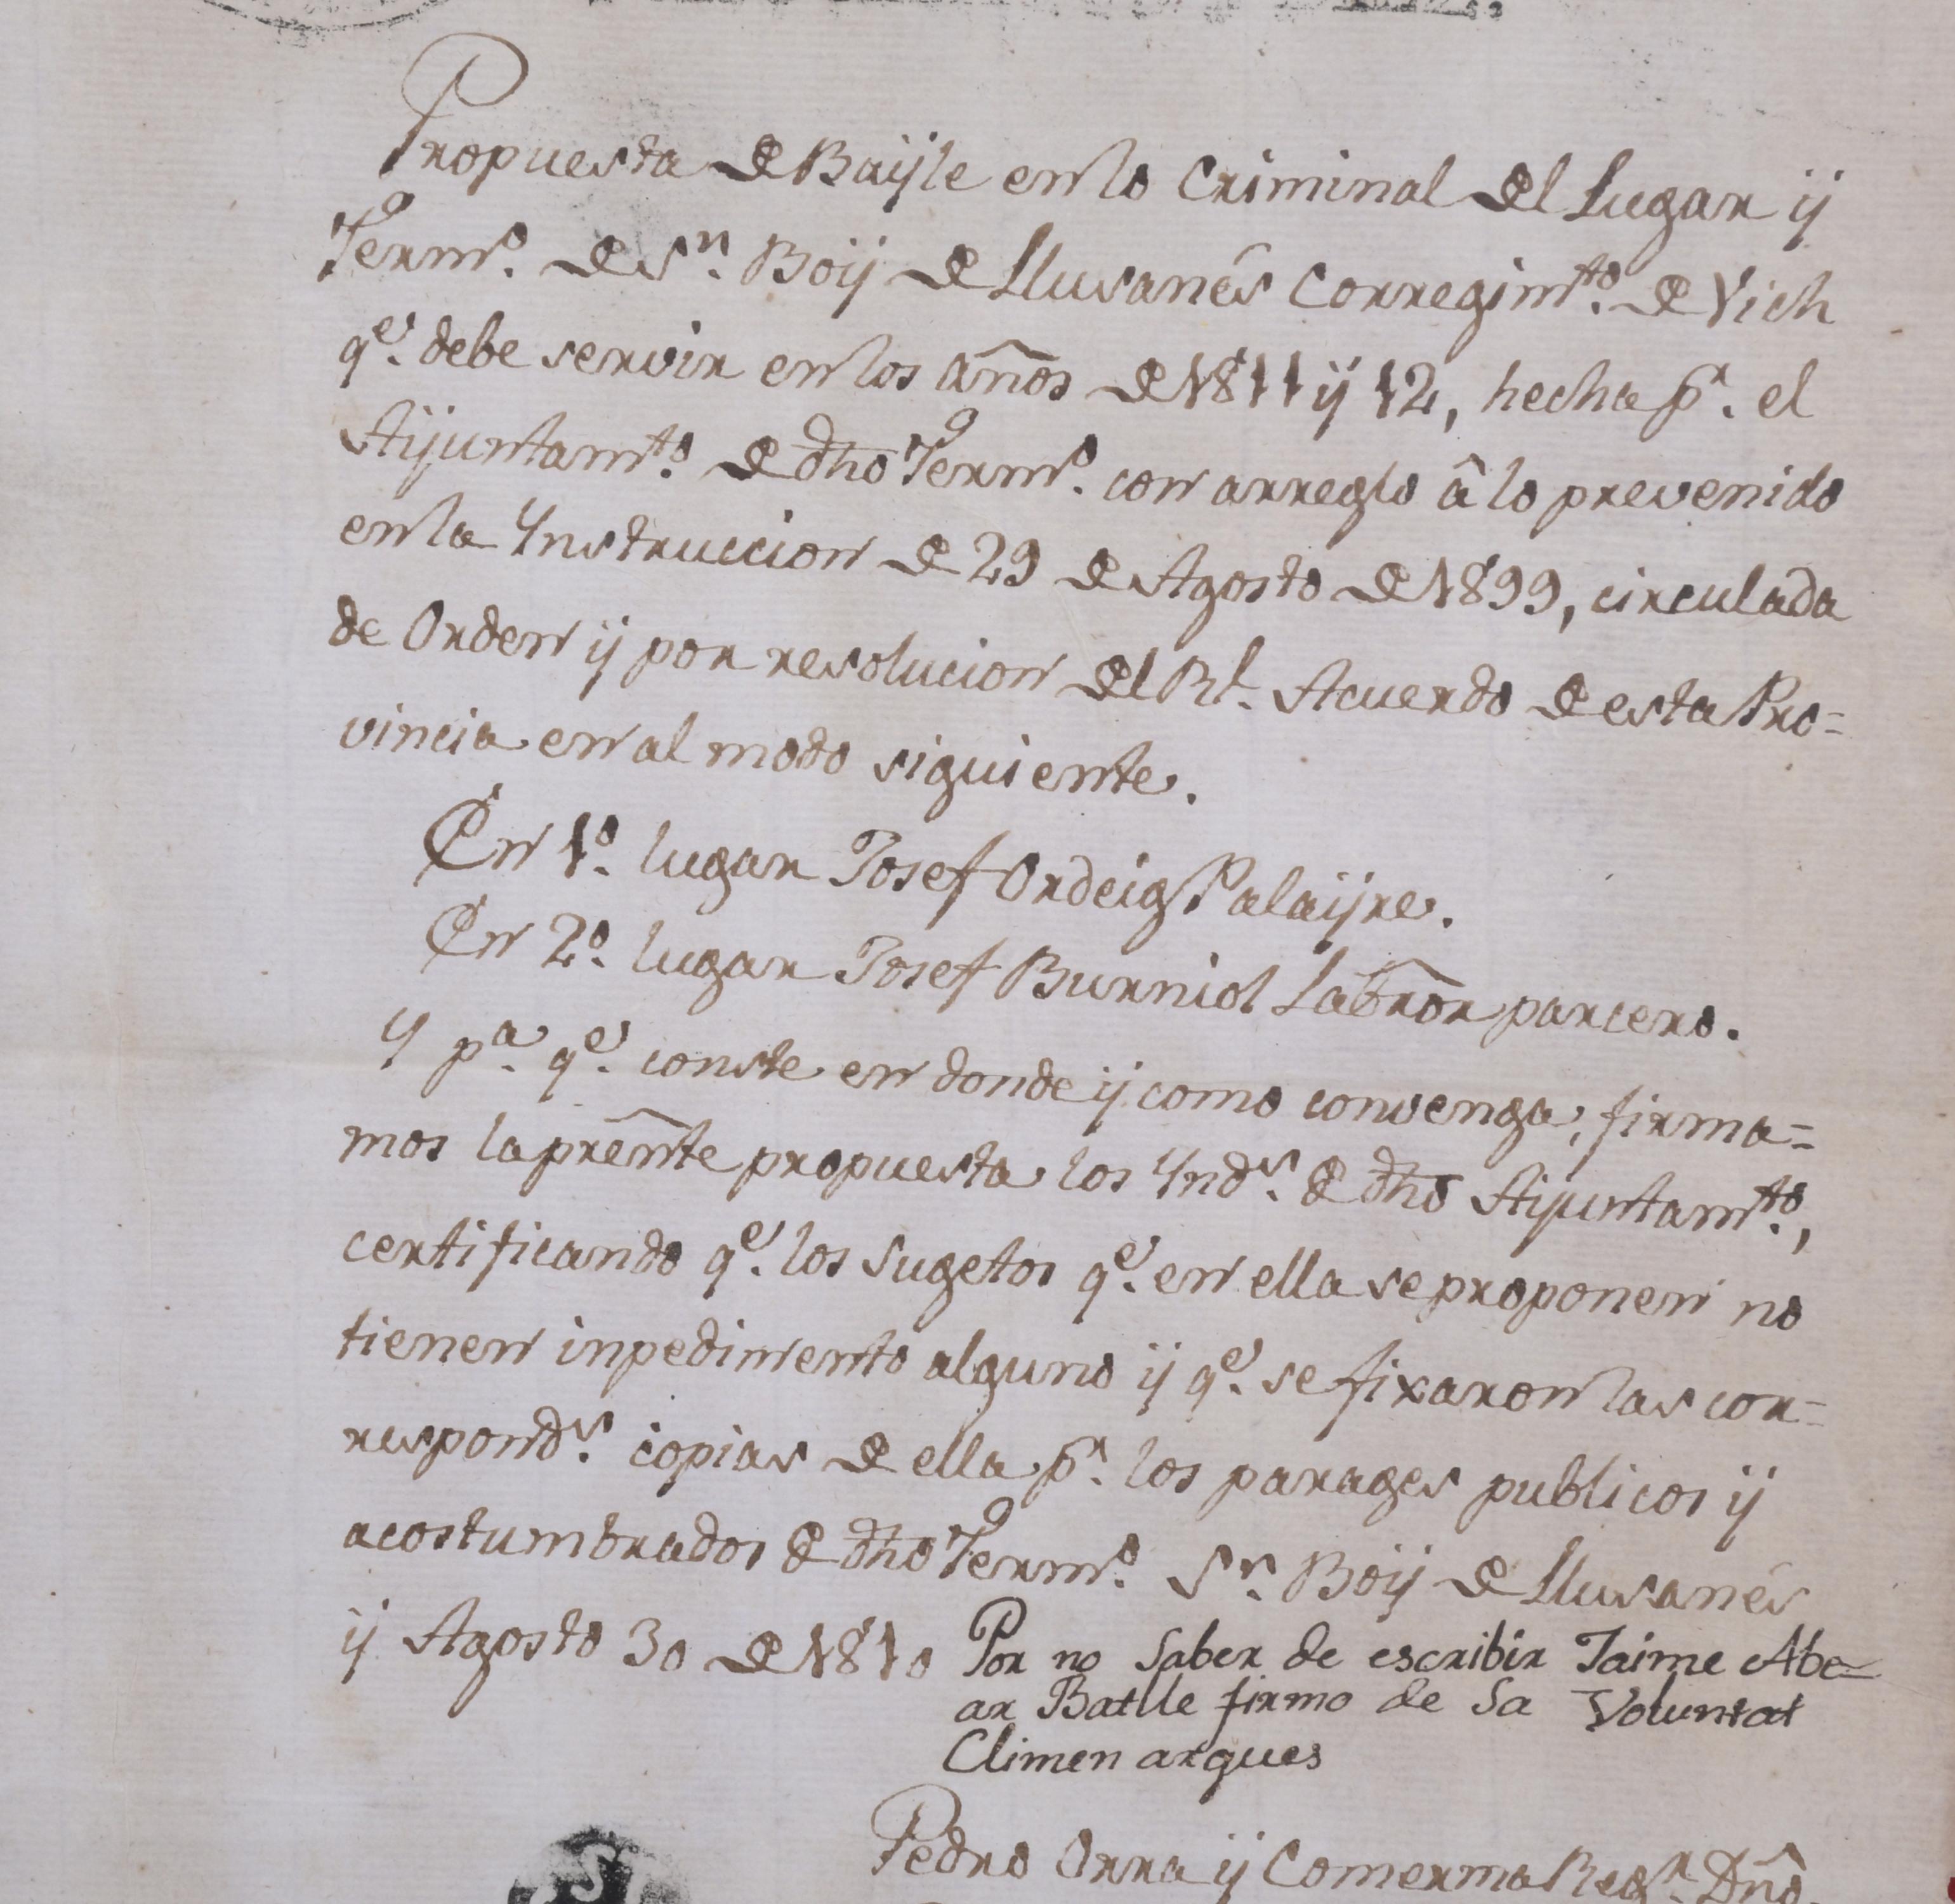 Propuesta de Baÿle en lo Criminal del Lugar ÿ
Term.º de S.n Boÿ de Llusanés Corregim.to de Vich
q.e debe servir en los años de 1811 ÿ 12, hecha p.r el
Aÿuntam.to de dho Term.º con arreglo â lo prevenido
en la Ynstruccion de 29 de Agosto de 1899, circulada
de Orden ÿ por resolucion del Rl. Acuerdo de esta Pro=
vincia en al modo siguiente.
En 1.º lugar Josef Ordeig Palaÿre.
En 2.º lugar Josef Burniol Labror parcero.
Y p.a q.e conste en donde ÿ como convenga, firma=
mos la preñte propuesta los Ynd.s de dho Aÿuntam.to,
certificando q.e los Sugetos q.e en ella se proponen no
tienen inpedimento alguno ÿ q.e se fixaron las cor=
respond.s copias de ella p.r los parages publicos ÿ
acostumbrados de dho Term.º S.n Boÿ de Llusanés
ÿ Agosto 30 de 1810
Por no Saber de escribir Jaime Abe=
ar Batlle firmo de Sa Voluntat
Climen argues
Pedro Orra ÿ Comerma Reg.r Dño.